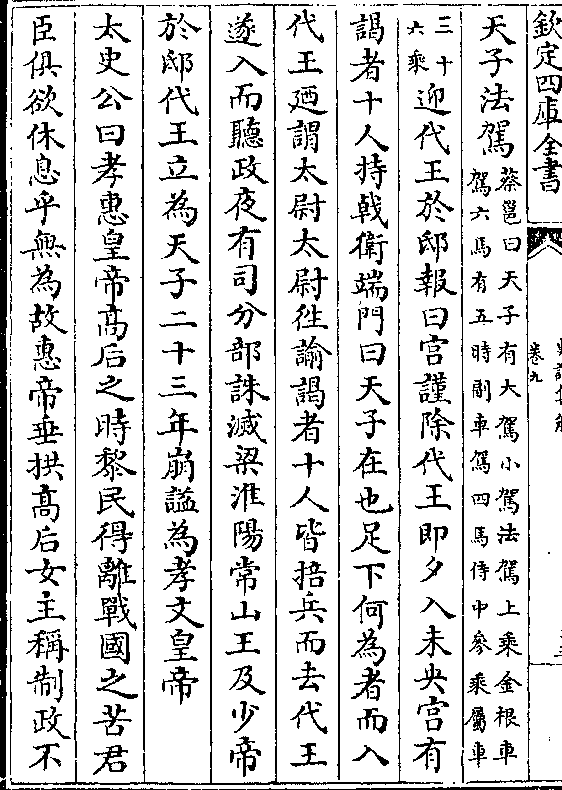 欽定四庫全書
卷九
天子法駕蔡邕曰天子有大駕小駕法駕上乘金根車
駕六馬有五時副車駕四馬侍中參乘屬車
三十
六乘迎代王於邸報曰宫謹除代王即夕入未央宫有
謁者十人持㦸衛端門曰天子在也足下何為者而入
代王廼謂太尉太尉徃諭謁者十人皆掊兵而去代王
遂入而聽政夜有司分部誅滅梁淮陽常山王及少帝
於邸代王立為天子二十三年崩諡為孝文皇帝
太史公曰孝惠皇帝髙后之時黎民得離戰國之苦君
臣俱欲休息乎無為故惠帝垂拱髙后女主稱制政不